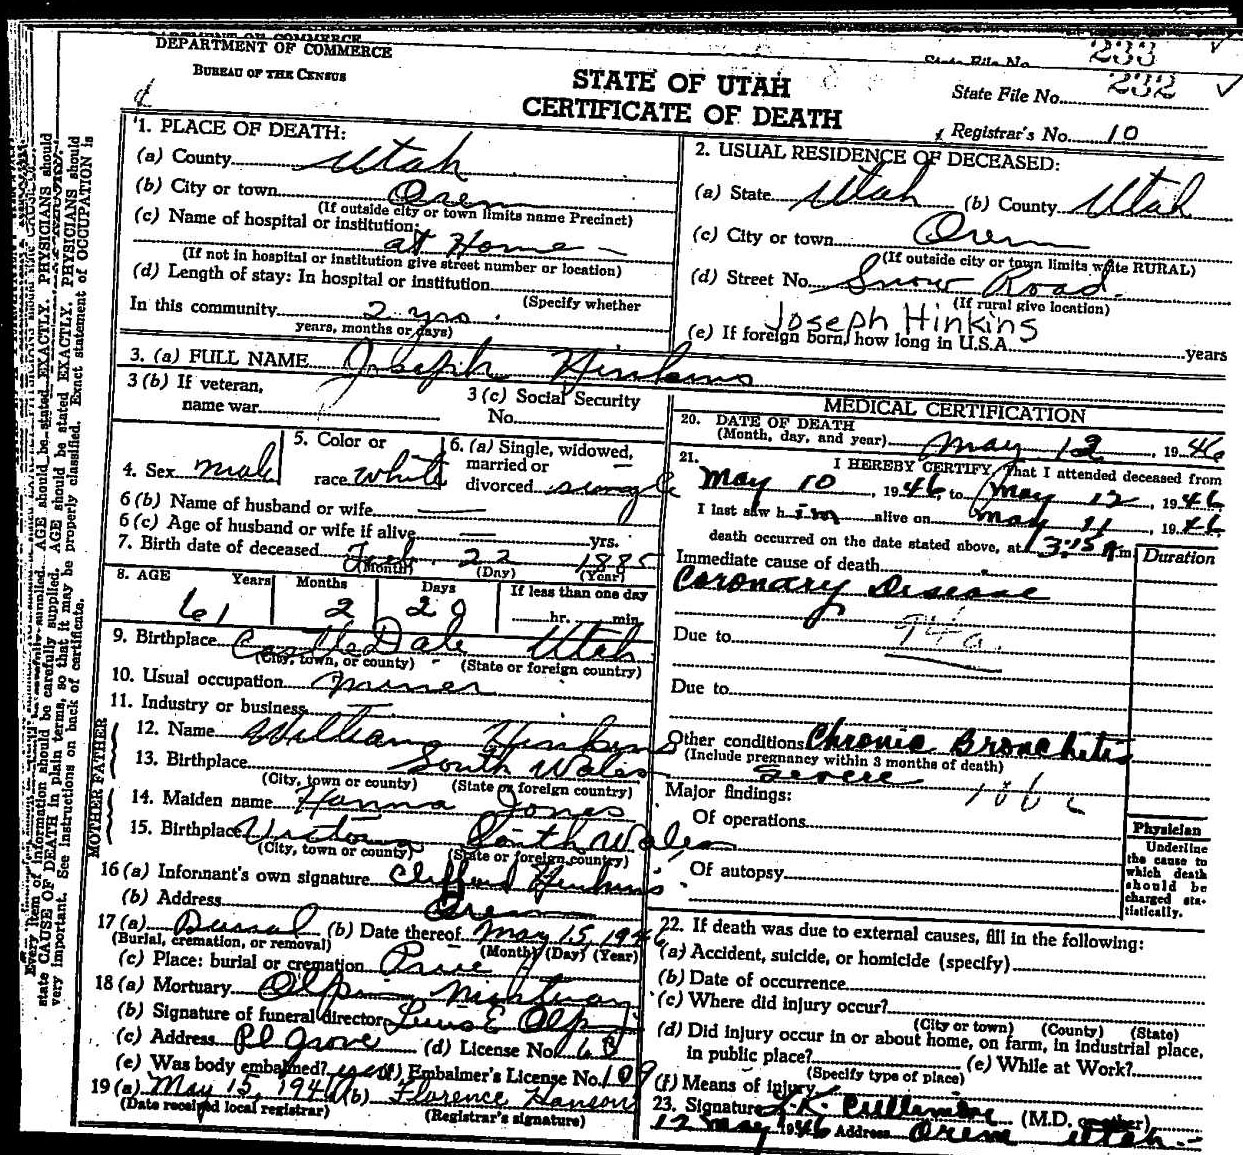 DEPARTMENT OF COMMERCE
BUREAU OF THE CENSUS
STATE OF UTAH
CERTIFICATE OF DEATH
State File No. 233
State File No. 232
Registrar's No. 10
1. PLACE OF DEATH:
(a) County Utah
(b) City or town Orem
(If outside city or town limits name Precinct)
(c) Name of hospital or institution:
at Home
(If not in hospital or institution give street number or location)
(d) Length of stay: In hospital or institution
(Specify whether
In this community 2 yrs.
years, months or days)
2. USUAL RESIDENCE OF DECEASED:
(a) State Utah (b) County Utah
(c) City or town Orem
(If outside city or town limits write RURAL)
(d) Street No. Snow Road
(If rural give location)
Joseph Hinkins
(e) If foreign born, how long in U.S.A. years
3. (a) FULL NAME Joseph Hinkins
3 (b) If veteran, name war
3 (c) Social Security No.
4. Sex male
5. Color or race white
6. (a) Single, widowed, married or divorced single
6 (b) Name of husband or wife
6 (c) Age of husband or wife if alive yrs.
7. Birth date of deceased Feb. 22 1885
(Month) (Day) (Year)
8. AGE Years Months Days If less than one day
61 2 20 hr. min.
9. Birthplace Castle Dale Utah
(City, town, or county) (State or foreign country)
10. Usual occupation miner
11. Industry or business
FATHER
12. Name William Hinkins
13. Birthplace South Wales
(City, town or county) (State or foreign country)
MOTHER
14. Maiden name Hanna Jones
15. Birthplace South Wales
(City, town or county) (State or foreign country)
16 (a) Informant's own signature Clifford Hinkins
(b) Address Orem
17 (a) Burial (b) Date thereof May 15, 1946
(Burial, cremation, or removal) (Month) (Day) (Year)
(c) Place: burial or cremation Price
18 (a) Mortuary Olpin Mortuary
(b) Signature of funeral director
(c) Address Pl Grove (d) License No. 63
(e) Was body embalmed? yes (f) Embalmer's License No. 109
19 (a) May 15, 1946 (b) Florence Hanson
(Date received local registrar) (Registrar's signature)
MEDICAL CERTIFICATION
20. DATE OF DEATH
(Month, day, and year) May 12, 1946
21. I HEREBY CERTIFY, That I attended deceased from
May 10, 1946 to May 12, 1946
I last saw him alive on May 11, 1946
death occurred on the date stated above, at 3:15 A m.
Duration
Immediate cause of death
Coronary Disease
94a.
Due to
Due to
Other conditions Chronic Bronchitis
(Include pregnancy within 3 months of death)
Severe
Major findings:
Of operations
Of autopsy
Physician
Underline the cause to which death should be charged statistically.
22. If death was due to external causes, fill in the following:
(a) Accident, suicide, or homicide (specify)
(b) Date of occurrence
(c) Where did injury occur?
(City or town) (County) (State)
(d) Did injury occur in or about home, on farm, in industrial place,
in public place? (e) While at Work?
(Specify type of place)
(f) Means of injury
23. Signature (M.D. or other)
12 May 1946 Address Orem Utah